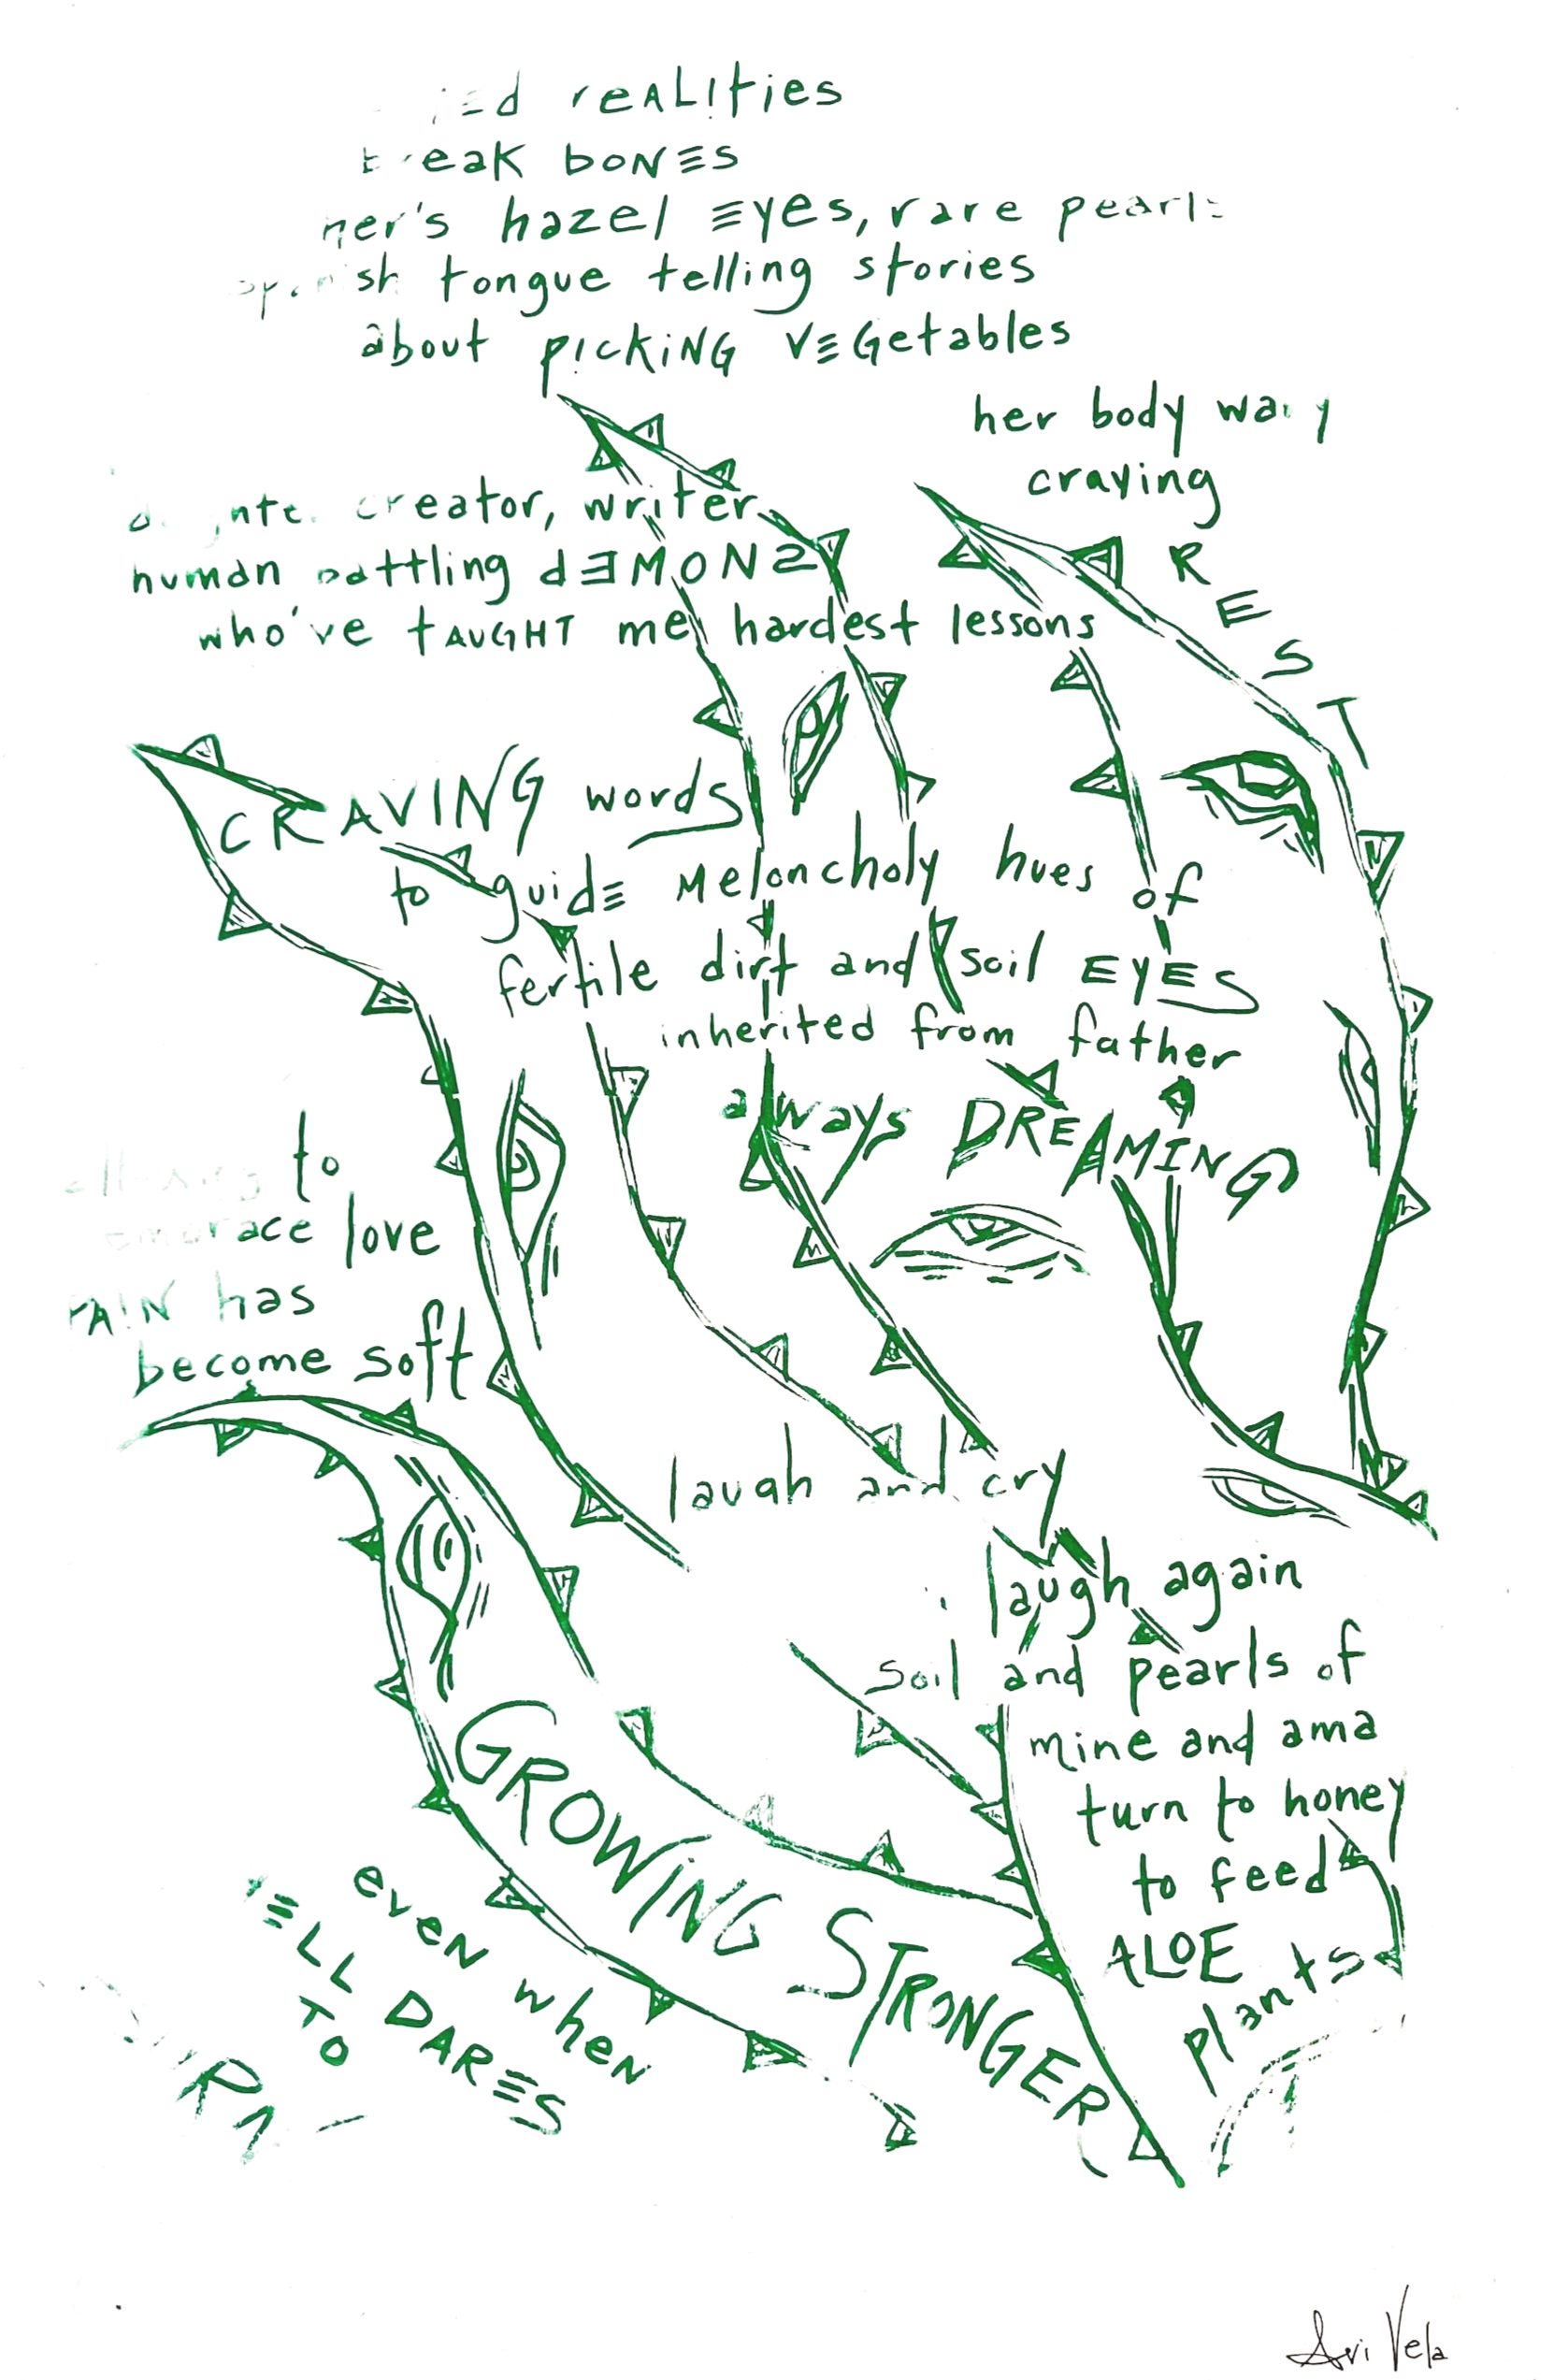 realities
break bones
hazel EYES, rare pearls
spanish tongue telling stories
about PICKING VEGetables
her body wary
craving
REST
creator, writer
human battling dEMONS
who've tAUGHT me hardest lessons
CRAVING words
to guide Meloncholy hues of
fertile dirt and soil EYES
inherited from father
always DREAMING
to
embrace love
PAIN has
become soft
laugh and cry
laugh again
soil and pearls of
mine and ama
turn to honey
to feed
ALOE
plants
GROWING STRONGER
eveN wheN
DARES
TO
Avi Vela